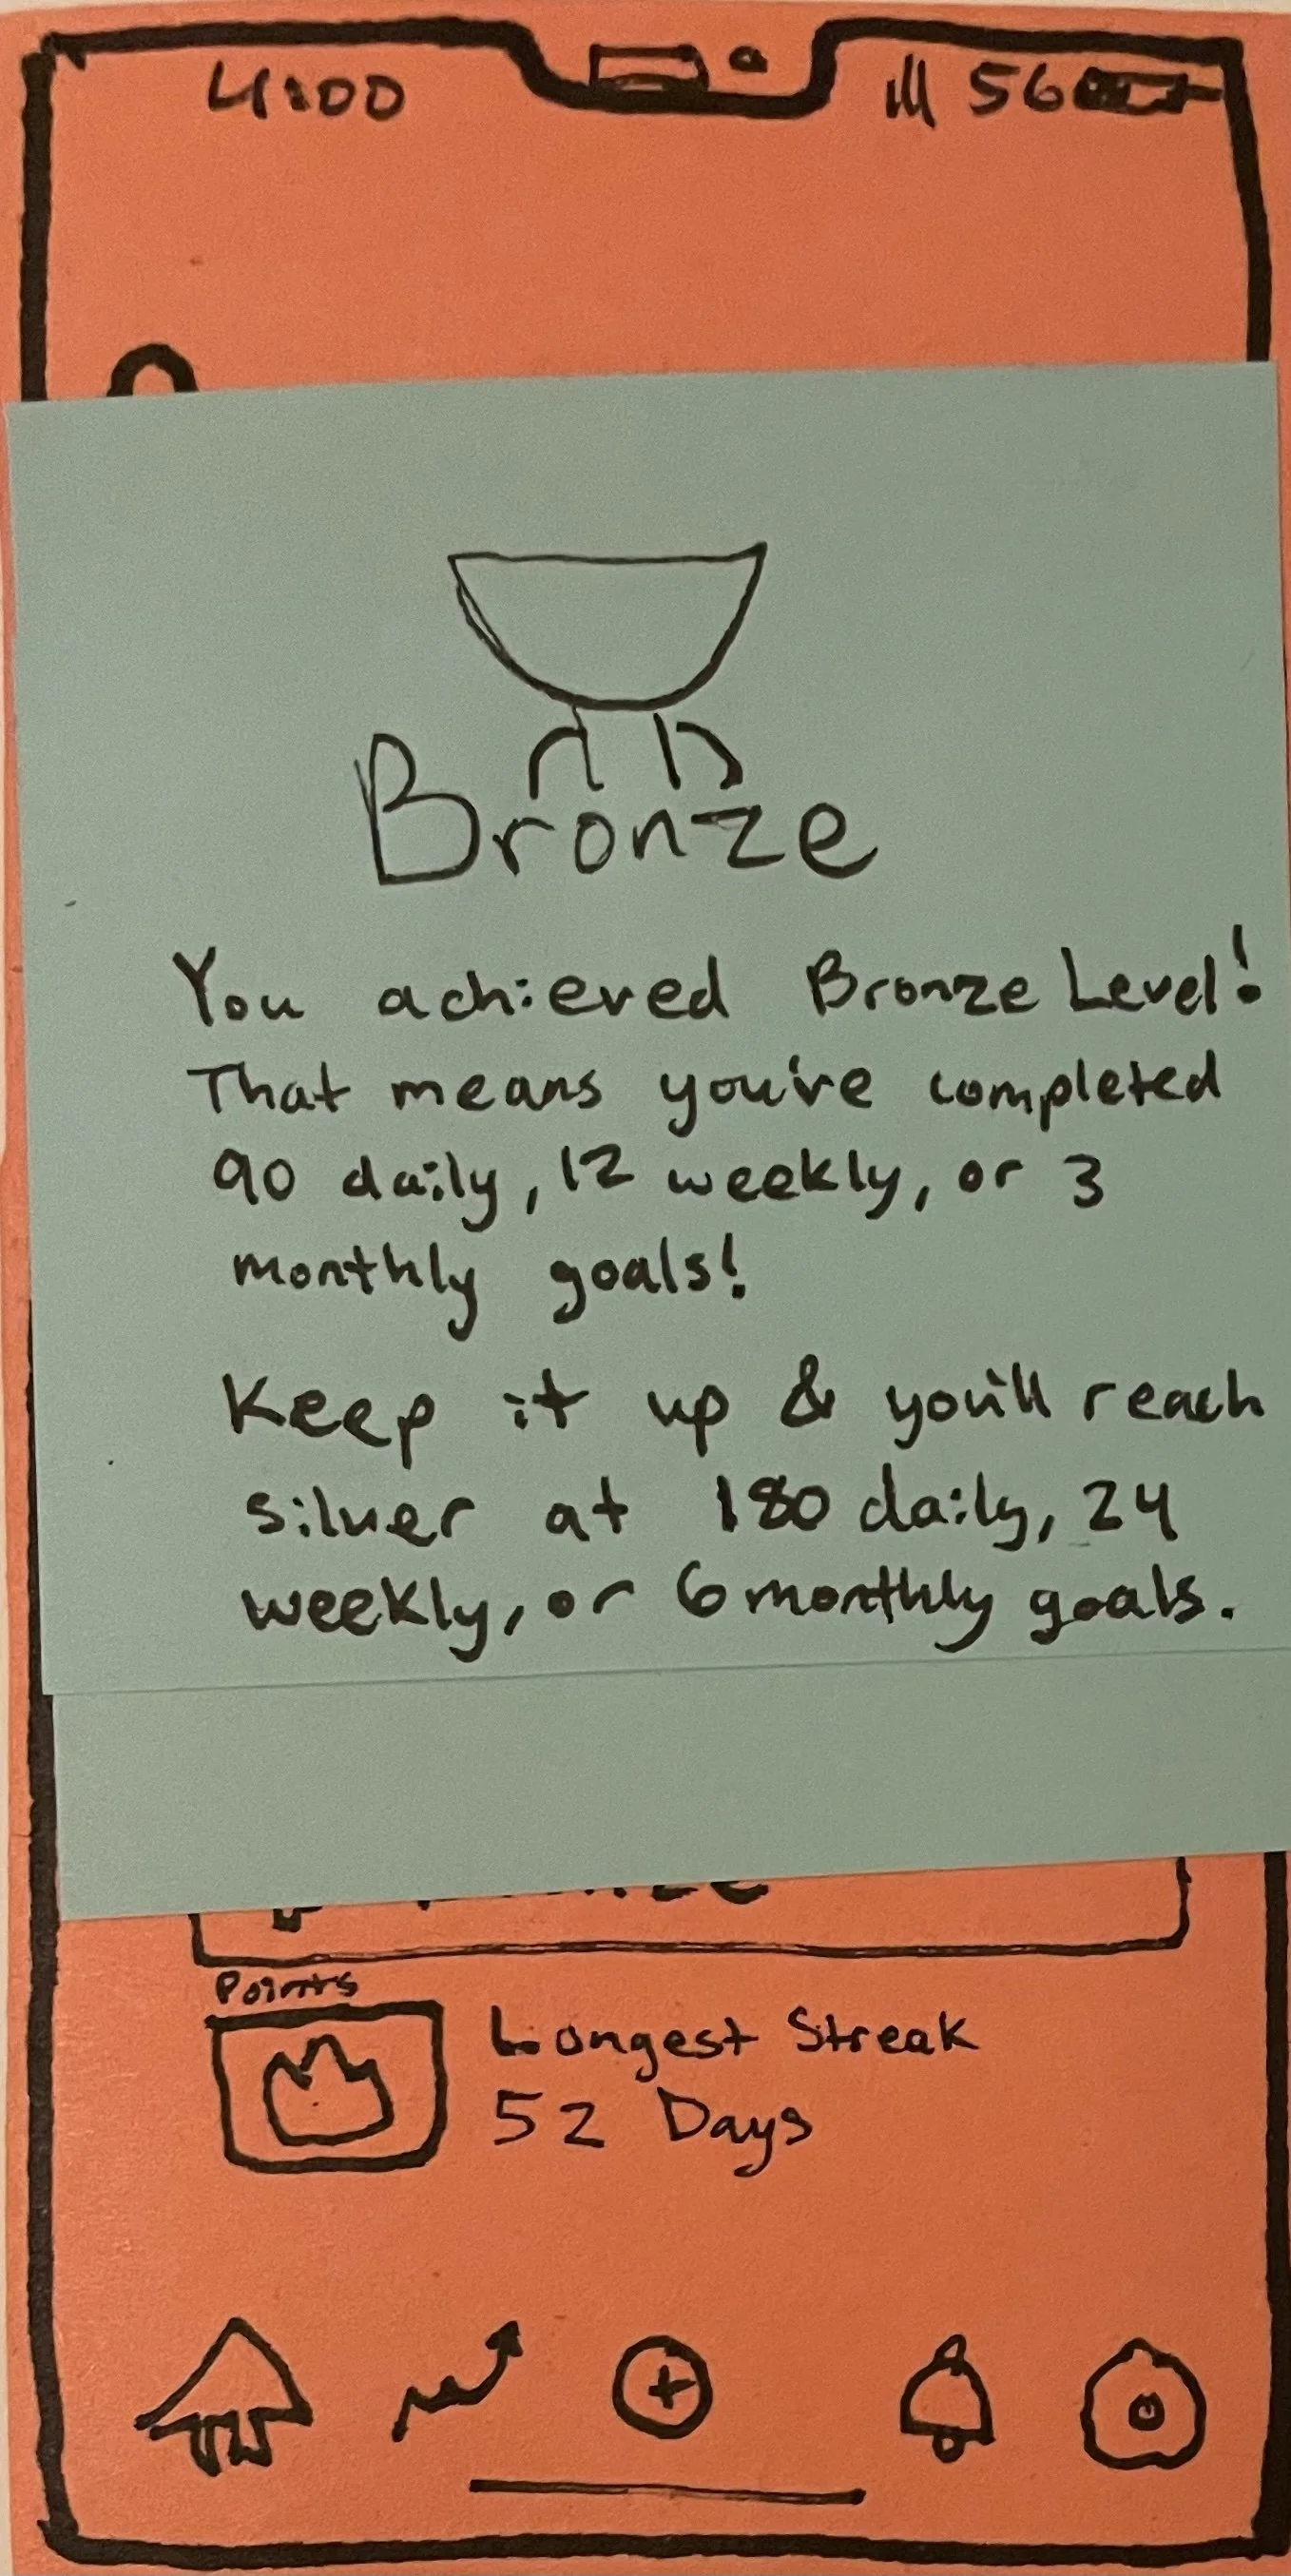 4:00
56
Bronze
You achieved Bronze Level!
That means you've completed
90 daily, 12 weekly, or 3
monthly goals!
Keep it up & you'll reach
silver at 180 daily, 24
weekly, or 6 monthly goals.
Points
Longest Streak
52 Days